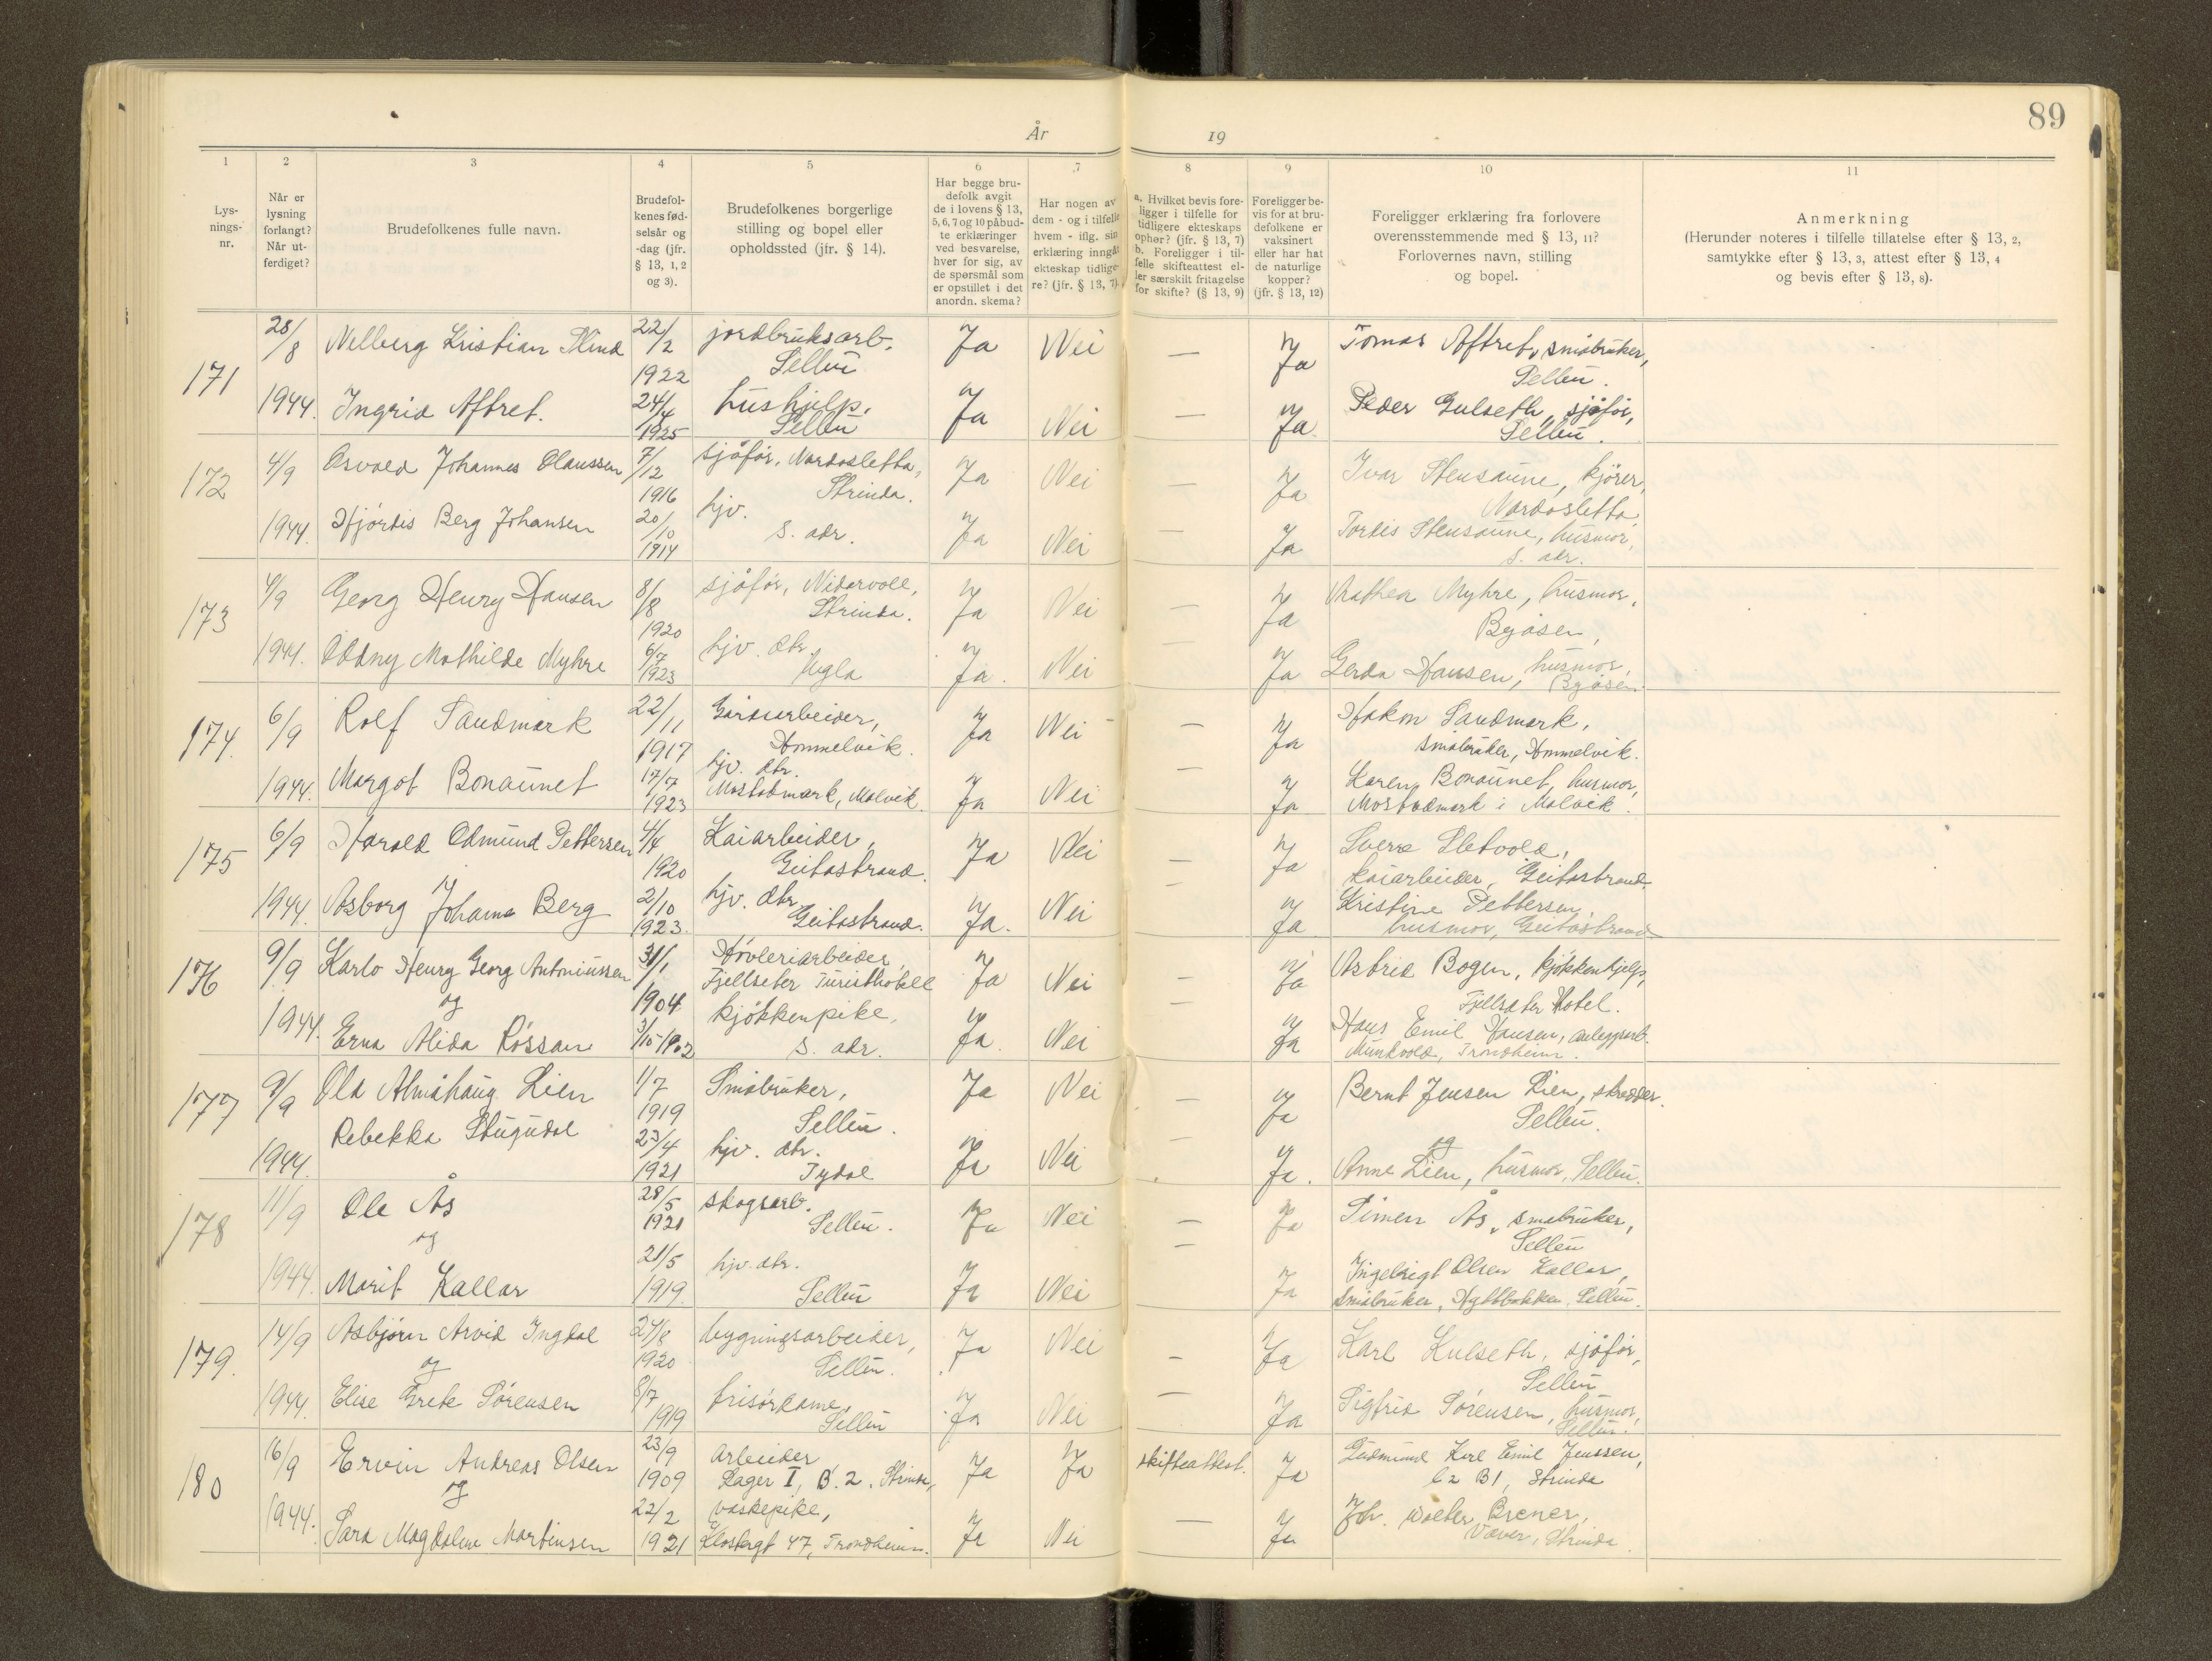 89
År 19
1 2 3 4 5 6 7 8 9 10 11
Lys-
nings-
nr.
Når er
lysning
forlangt?
Når ut-
ferdiget?
Brudefolkenes fulle navn.
Brudefol-
kenes fød-
selsår og
-dag (jfr.
§ 13, 1, 2
og 3).
Brudefolkenes borgerlige
stilling og bopel eller
opholdssted (jfr. § 14).
Har begge bru-
defolk avgit
de i lovens § 13,
5, 6, 7 og 10 påbud-
te erklæringer
ved besvarelse,
hver for sig, av
de spørsmål som
er opstillet i det
anordn. skema?
Har nogen av
dem - og i tilfelle
hvem - iflg. sin
erklæring inngåt
ekteskap tidlige-
re? (jfr. § 13, 7)
a. Hvilket bevis fore-
ligger i tilfelle for
tidligere ekteskaps
ophør? (jfr. § 13, 7)
b. Foreligger i til-
felle skifteattest el-
ler særskilt fritagelse
for skifte? (§ 13, 9)
Foreligger be-
vis for at bru-
defolkene er
vaksinert
eller har hat
de naturlige
kopper?
(jfr. § 13, 12)
Foreligger erklæring fra forlovere
overensstemmende med § 13, 11?
Forlovernes navn, stilling
og bopel.
Anmerkning
(Herunder noteres i tilfelle tillatelse efter § 13, 2,
samtykke efter § 13, 3, attest efter § 13, 4
og bevis efter § 13, 8).
171 28/8 Kristian 22/2 1922 jordbruksarb. Ja Nei — Ja Tomas Aftret, småbruker,
Selbu Selbu.
1944. Ingrid Aftret. 24/4 1925 hushjelp. Ja Nei — Ja. Peder Gulseth, sjåfør,
Selbu Selbu.
172 4/9 Osvald Johannes Olaussen 7/12 1916 sjåfør, Nardosletta, Ja Nei — Ja Ivar Stensaune, kjører,
Strinda. Nardosletta
1944. Hjørdis Berg Johansen 20/10 1914 hjv. Ja Nei — Ja Tordis Stensaune, husmor,
s. adr. s. adr.
173 4/9 Georg Henry Hansen 8/8 1920 sjåfør, Nidarvoll, Ja Nei — Ja Mathea Myhre, husmor,
Strinda. Byåsen,
1944. Oddny Mathilde Myhre 6/7 1923 hjv. dtr. Ja. Nei — Ja Gerda Hansen, husmor,
Ugla Byåsen.
174. 6/9 Rolf Sandmark 22/11 1917 Gårdsarbeider, Ja Nei — Ja Hakon Sandmark,
Hommelvik. småbruker, Hommelvik.
1944. Margot Bonaunet 17/7 1923 hjv. dtr. Ja Nei — Ja Karen Bonaunet, husmor,
Mostadmark, Malvik. Mostadmark i Malvik.
175 6/9 Harald Edmund Pettersen 4/4 1920 Kaiarbeider, Ja Nei — Ja Sverre Sletvold,
Geitastrand. kaiarbeider, Geitastrand.
1944. Asborg Johanna Berg 2/10 1923. hjv. dtr. Ja. Nei — Ja Kristine Pettersen
Geitastrand. husmor, Geitastrand
176 9/9 Karlo Henry Georg Antoniussen 31/1 1904 Høvleriarbeider, Ja Nei — Ja Astrid Bogen, kjøkkenhjelp,
og Fjellseter Turisthotell Fjellseter Hotel.
1944. Erna Alida Rossan 3/10-1902 kjøkkenpike, Ja. Nei — Ja Hans Emil Hansen, anleggsarb.
s. adr. Munkvold, Trondheim.
177 9/9 Ola Almåhaug Lien 1/7 1919 Småbruker, Ja Nei — Ja Bernt Jensen Lien, skredder.
Selbu. Selbu.
og
1944. Rebekka Stugudal 23/4 1921 hjv. dtr. Ja Nei — Ja. Anne Lien, husmor, Selbu.
Tydal
178 11/9 Ole Ås 28/5 1921 skogsarb. Ja Nei — Ja Simen Ås, småbruker,
og Selbu. Selbu
1944. Marit Kallar 21/5 1919. hjv. dtr. Ja Nei — Ja Ingebrigt Olsen Kallar,
Selbu småbruker, Hyttbakken, Selbu.
179. 14/9 Asbjørn Arvid Ingdal 27/8 1920 bygningsarbeider, Ja Nei — Ja Karl Kulseth, sjåfør,
og Selbu. Selbu
1944. Elise Grete Sørensen 8/7 1919 frisørdame, Ja Nei — Ja Sigfrid Sørensen, husmor,
Selbu Selbu.
180 16/9 Ervin Andreas Olsen 23/9 1909 arbeider Ja Ja skifteattest. Ja Gudmund Karl Emil Jenssen,
og Lager I, B. 2. Strinda, B1, Strinda
1944. Sara Magdalene Martinsen 22/2 1921 vaskepike, Ja Nei — Ja Joh. Walter Brener,
Klostergt 47, Trondheim. Væver, Strinda.